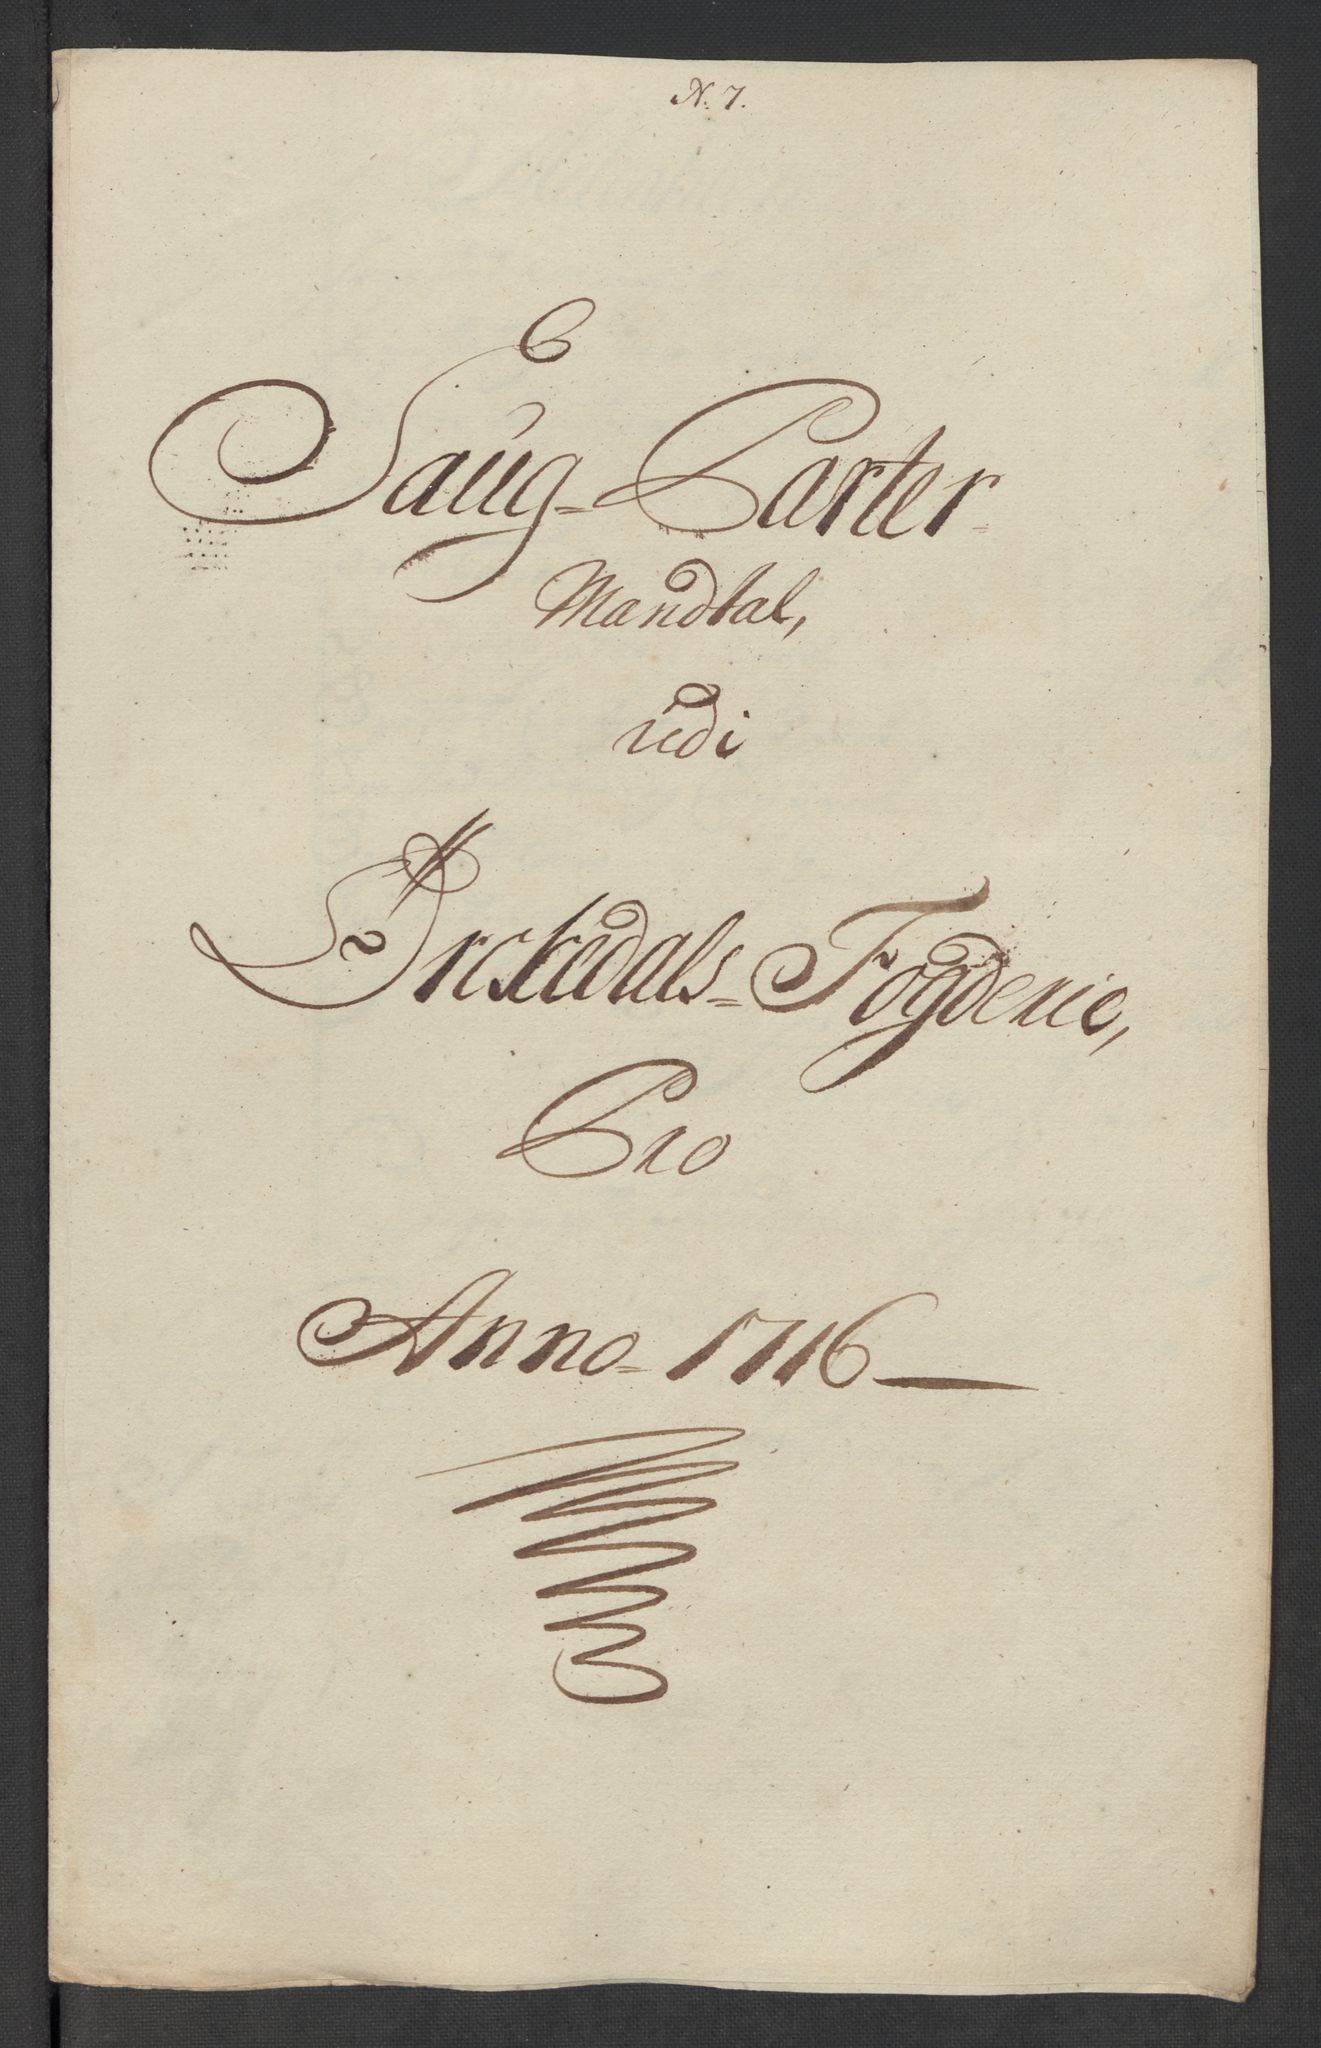 N. 7.
Saug-Parter
Mandtal,
udi
Ørckedals-Fogderie,
Pro
Anno 1716